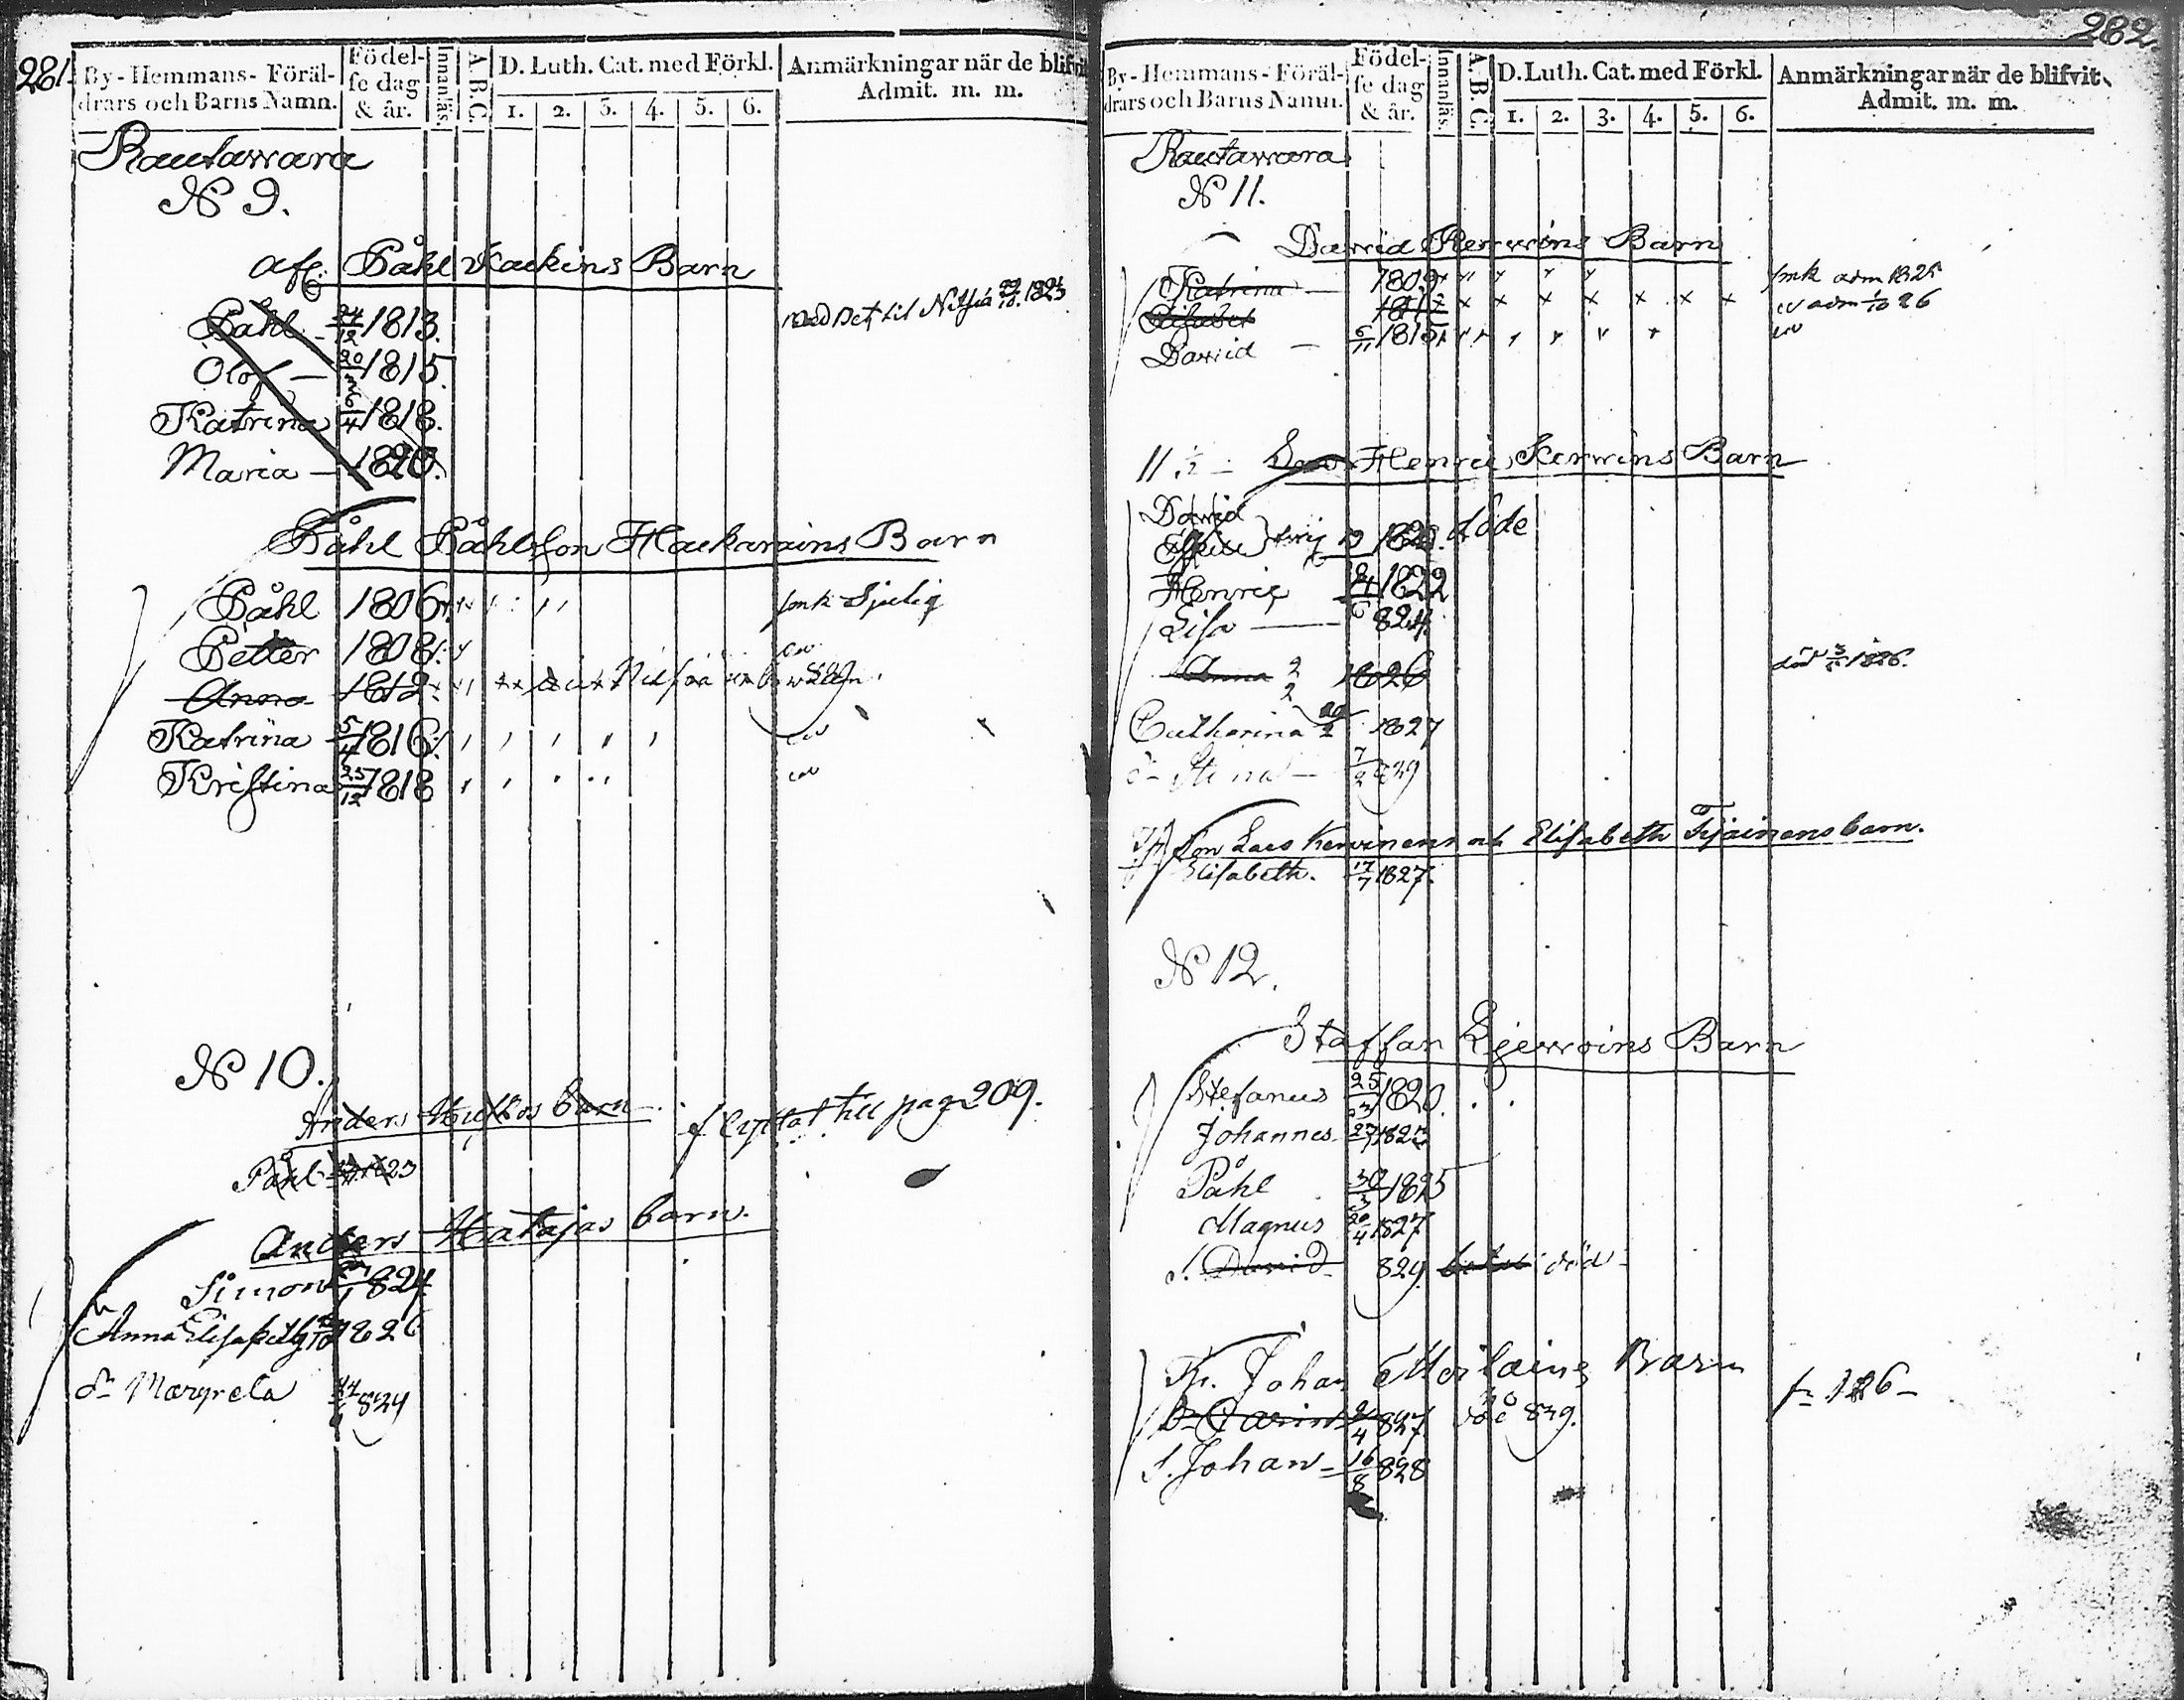 281.
By-Hemmans-Föräldrars och Barns Namn.
Födelse dag & år.
Innanläs.
A. B. C.
D. Luth. Cat. med Förkl.
1. 2. 3. 4. 5. 6.
Anmärkningar när de blifvit Admit. m. m.
Rautawara
N 9.
Afl. Påhl Barn
Påhl 24/12 1813. med Bet till Nilsiä 1823
Olof 20/3 1815.
Katrina 6/4 1818.
Maria 1820.
Påhl Påhlsson Hackarains Barn
Påhl 1806
Petter 1808
Anna 1812
Katrina 5/4 1816
Kristina 25/12 1818
N 10.
Anders barn flyttat till pag 209.
Påhl 1823
Anders Hatajas barn.
Simon 1824
Anna Elisabeth 1826
dr Margreta 829
282.
By-Hemmans-Föräldrars och Barns Namn.
Födelse dag & år.
Innanläs.
A. B. C.
D. Luth. Cat. med Förkl.
1. 2. 3. 4. 5. 6.
Anmärkningar när de blifvit Admit. m. m.
Rautawara
N 11.
Dawid Kerwins Barn
Katrina 1809 smk adm 1825
Elisabet 1812 adm 1/10 26
Dawid 6/11 1815
11.½ Henric Kerwins Barn
Dawid
döde
Henric 1822
Lisa 824.
Anna 2/2 1826 död 1826.
Catharina 20/2 1827
dr Stina 7/2 829
Son Lars Kervinens och Elisabeth Tijainens barn.
Elisabeth. 17/7 1827.
N 12.
Staffan Barn
Stefanus 25/3 1820.
Johannes
Påhl 30/3 1825
Magnus 20/4 1827
s. David 829 död
Johan Barn fr 126
Dr 827 död 829.
S. Johan 16/8 828